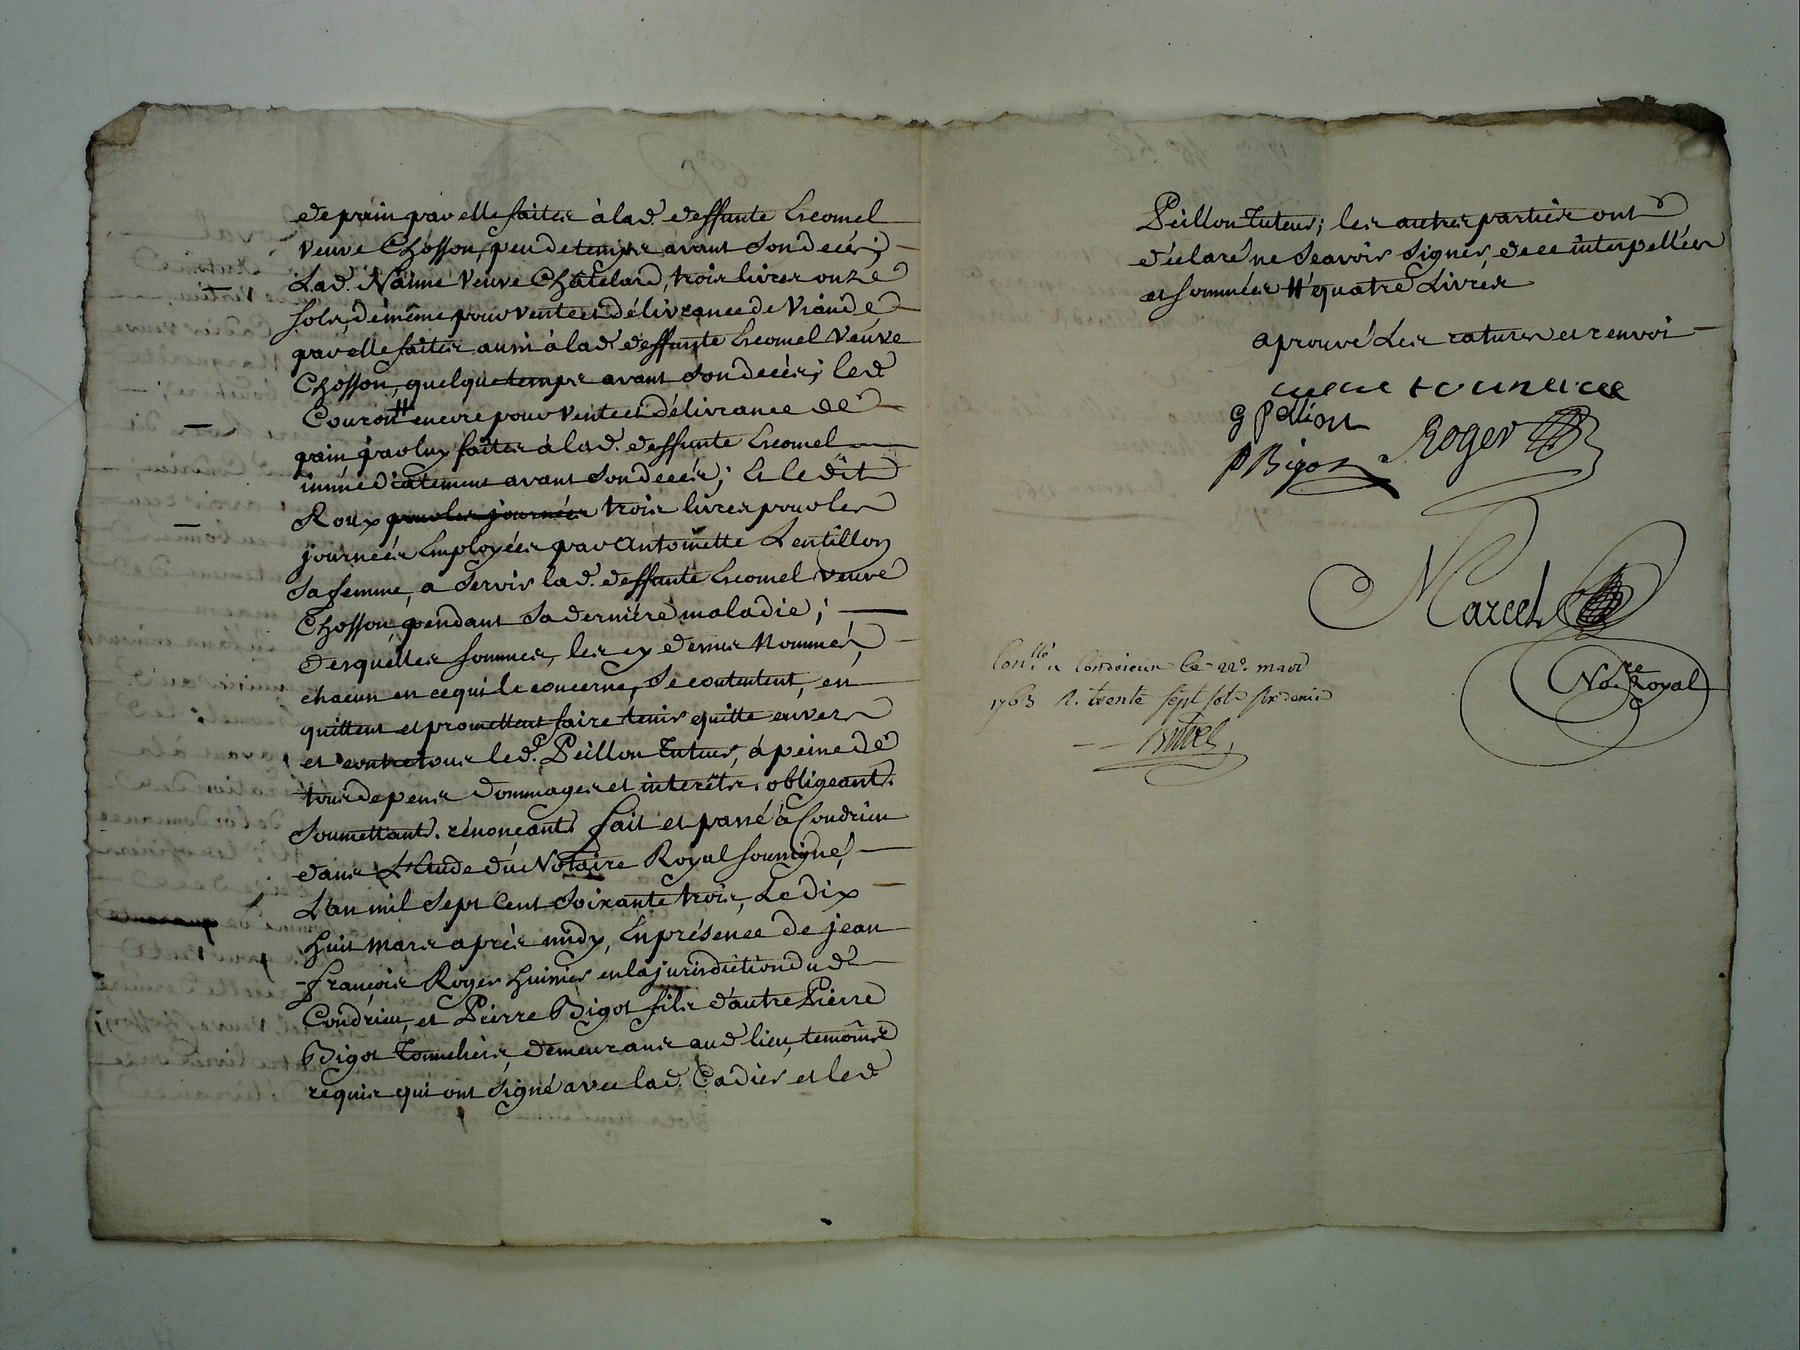 de pain par elle faites à lad. deffunte Lecomel
veuve Chosson, peu de temps avant son decés;
Lad. Naime veuve Châtelard, trois livres onze
sols, de même pour vente et délivrance de viande
par elle faites aussi à lad. deffunte Lecomel veuve
Chosson, quelque temps avant son decés; led.
Couron # encore pour vente et délivrance de
pain par luy faites à lad. deffunte Lecomel
immediatement avant son decés; Et le dit
Roux pour les journées trois livres pour les
journées employées par Antoinette Lentillon
sa femme, a servir lad. deffunte Lecomel veuve
Chosson, pendant sa derniere maladie;
desquelles sommes, les cy dessus nommés,
chacun en ce qui le concerne, se contentent, en
quittent et promettent faire tenir quitte envers
et contre tous led. Peillon Tuteur, à peine de
tous depens dommages et interêts. obligeants.
soumettants. rénonçants fait et passé à Condrieu
dans L'Etude du Notaire Royal soussigné,
L'an mil sept cent soixante trois, Le dix
huit mars aprés midy, En présence de jean
françois Roger huissier en la jurisdiction dud.
Condrieu, et Pierre Bigot fils d'autre Pierre
Bigot Tonnelier, demeurans aud. lieu, temoins
requis qui ont signé avec lad. Cadier et led.
Peillon Tuteur; les autres parties ont
déclaré ne sçavoir signer, de ce interpellées
et sommées # quatre Livres
aprouvé Les ratures et renvoi
g pellion
Roger
P Bigot
Marcel
No.re Royal
Con.llé a Condrieu le 22e mars
1763 R. trente sept sols six deniers